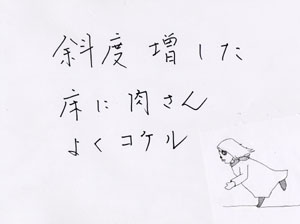 斜度増した
床に肉さん
よくコケル